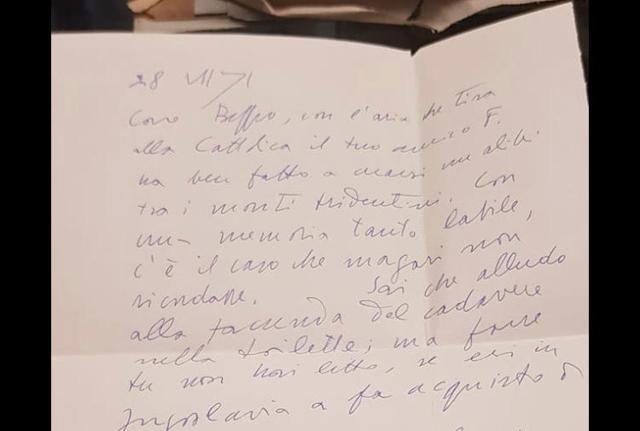 28 VII 71
Caro Beppo, con l'aria che tira
alla Cattolica il tuo amico F.
ha ben fatto a crearsi un alibi
tra i monti tridentini. Con
una memoria tanto labile,
c'è il caso che magari non
ricordasse. Sai che alludo
alla faccenda del cadavere
nella toilette; ma forse
tu non hai letto, se eri in
Jugoslavia a fa acquisto di